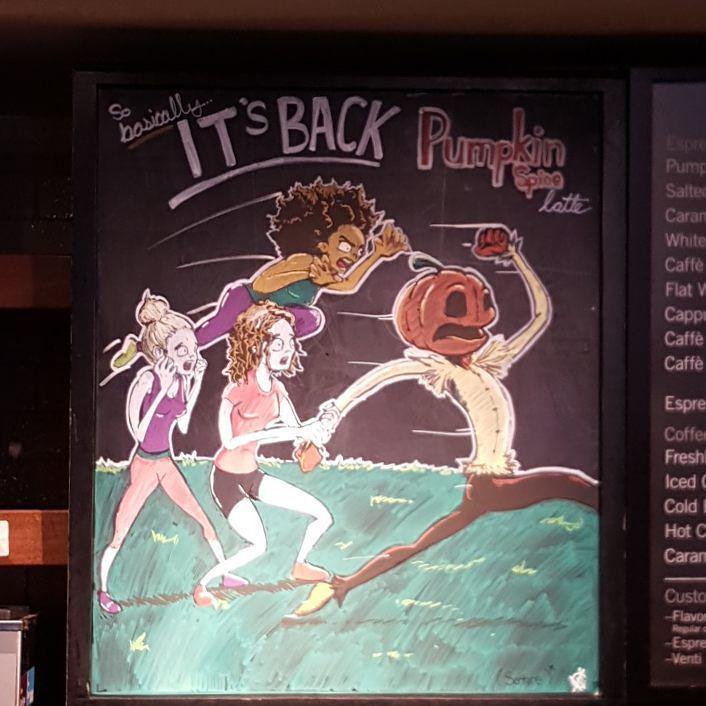 So
basically...
IT'S BACK
Pumpkin
Spice
latte
Espre
Pump
Salted
Caran
White
Caffè
Flat W
Capp
Caffè
Caffè
Espre
Coffe
Fresh
Iced C
Cold
Hot C
Caran
Custo
–Flavo
Regular
–Espre
–Venti